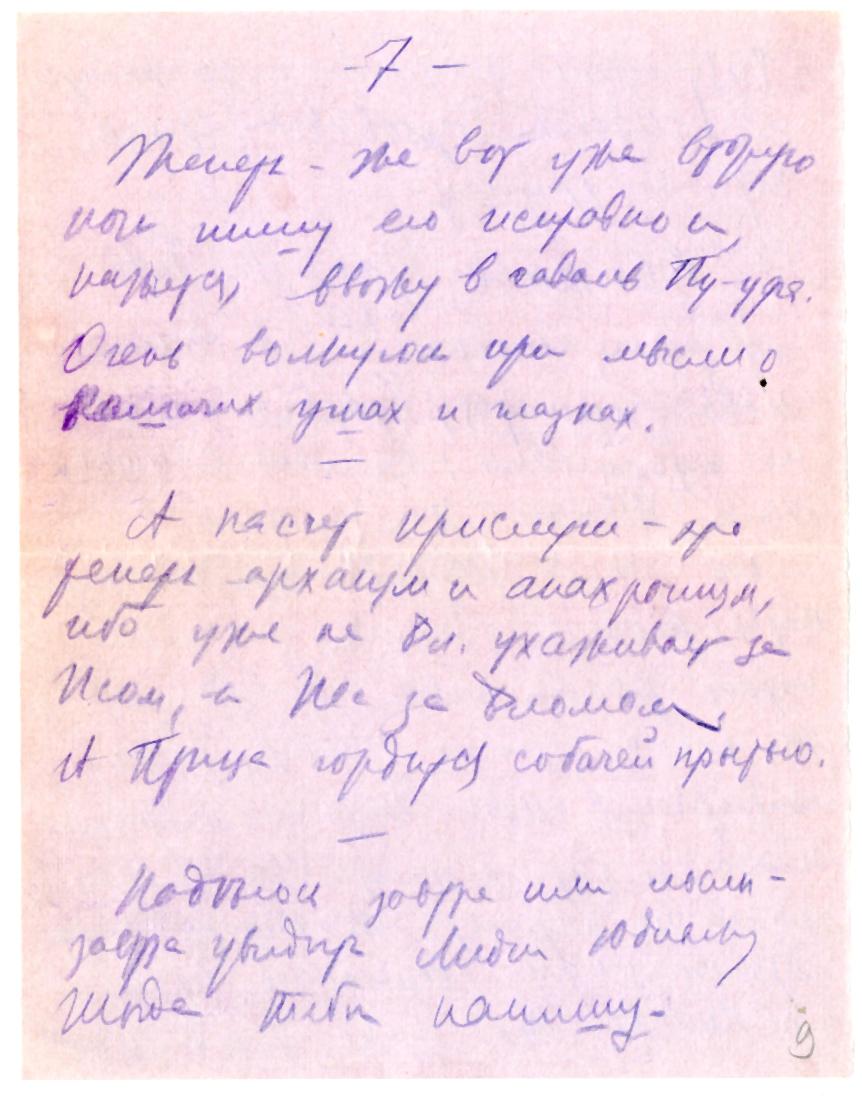 - 7 -
Теперь - же вот уже вторую
ночь пишу его исправно и,
кажется, ввожу в гавань Пу-уфа.
Очень волнуюсь при мысли о
ушах и глазках.
А насчет прислуги - это
теперь архаизм и анахронизм,
ибо уже не Вл. ухаживает за
Псом, а Пес за
А Птица гордится собачей прытью.
Надеюсь завтра или после-
завтра увидеть
Тогда Тебе напишу.
9